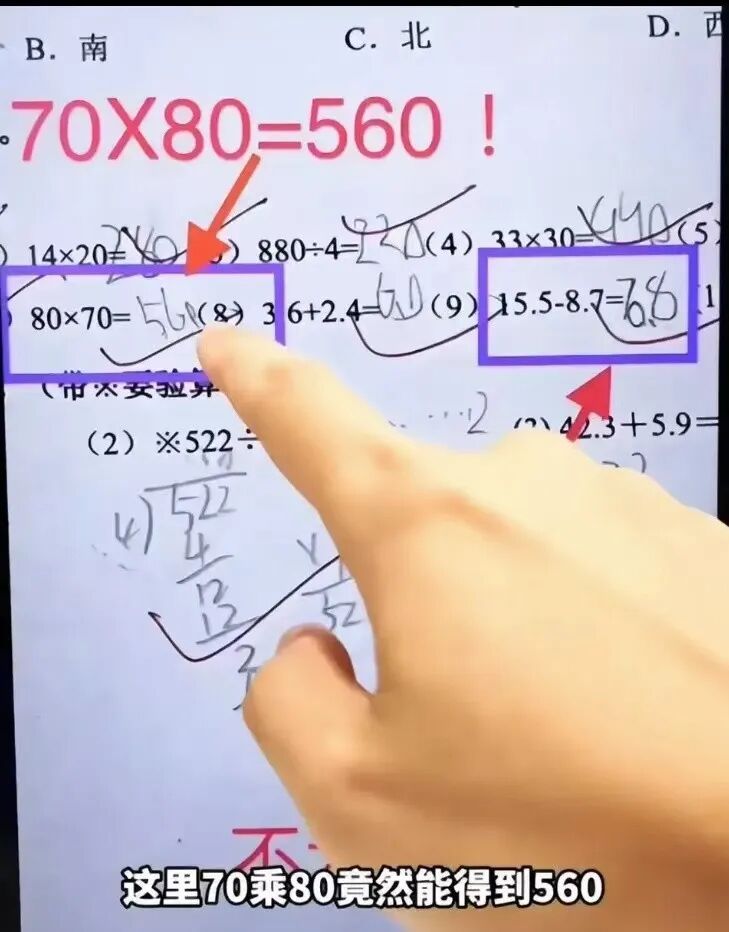 B. 南 C. 北 D. 西
70X80=560！
14×20=280 880÷4=220 (4) 33×30= (5)
80×70=560 (8) 3.6+2.4=6.0 (9) 15.5-8.7=6.8
(带※要验算
(2) ※522÷ ……2 42.3+5.9=
522
4
4
12
12
2
52
这里70乘80竟然能得到560